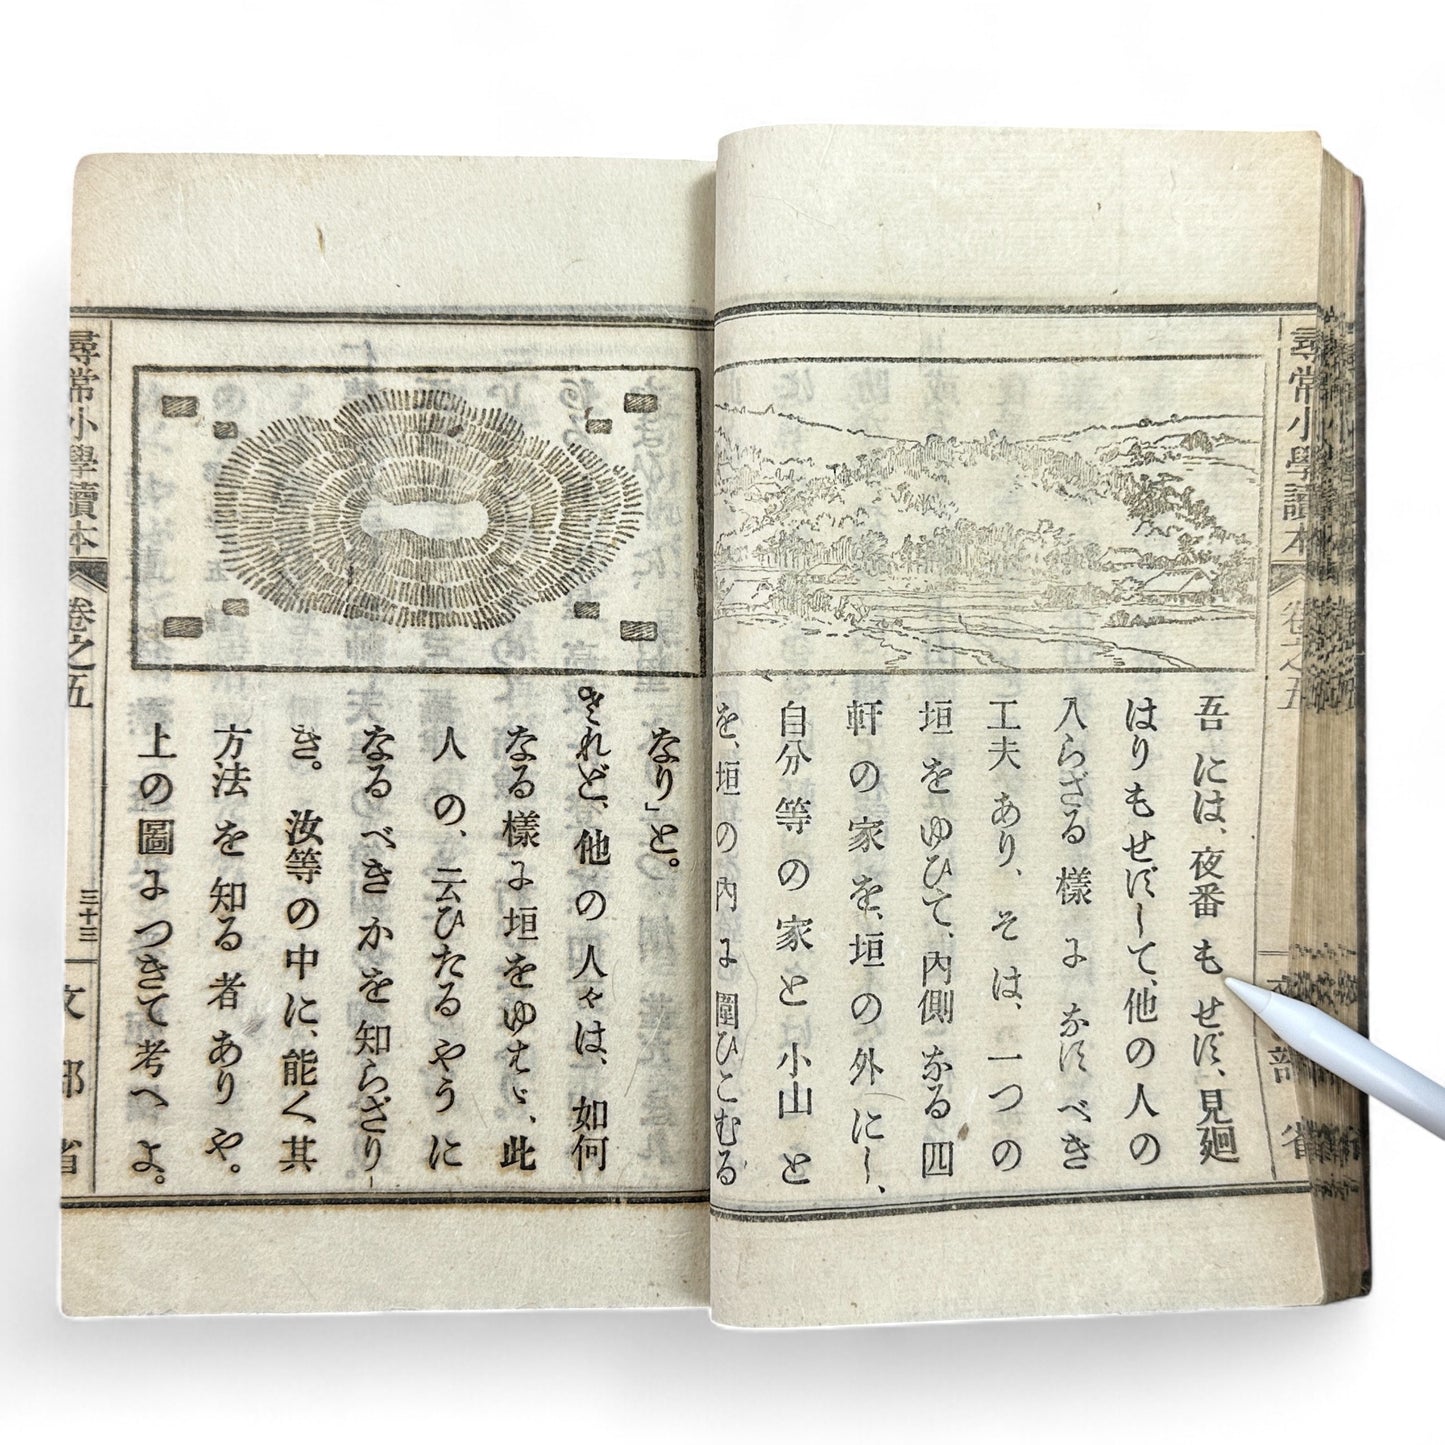 尋常小學讀本
卷之五
文部省
吾には、夜番もせず、見廻
はりもせずして、他の人の
入らざる樣になすべき
工夫あり、そは、一つの
垣をゆひて、内側なる四
軒の家を、垣の外にし、
自分等の家と小山と
を、垣の内に圍ひこむる
なり」と。
されど、他の人々は、如何
なる樣に垣をゆはゞ、此
人の、云ひたるやうに
なるべきかを知らざり
き。汝等の中に、能く其
方法を知る者ありや。
上の圖につきて考へよ。
尋常小學讀本
卷之五
三十三
文部省